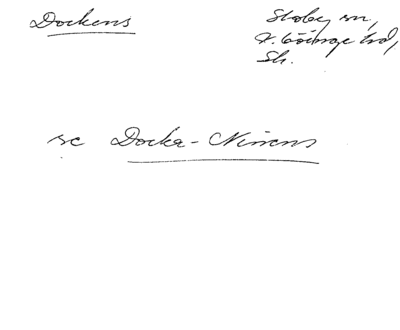 Dockens
Stoby sn,
V. Göinge hd,
Sk.
se Docka-Nissens